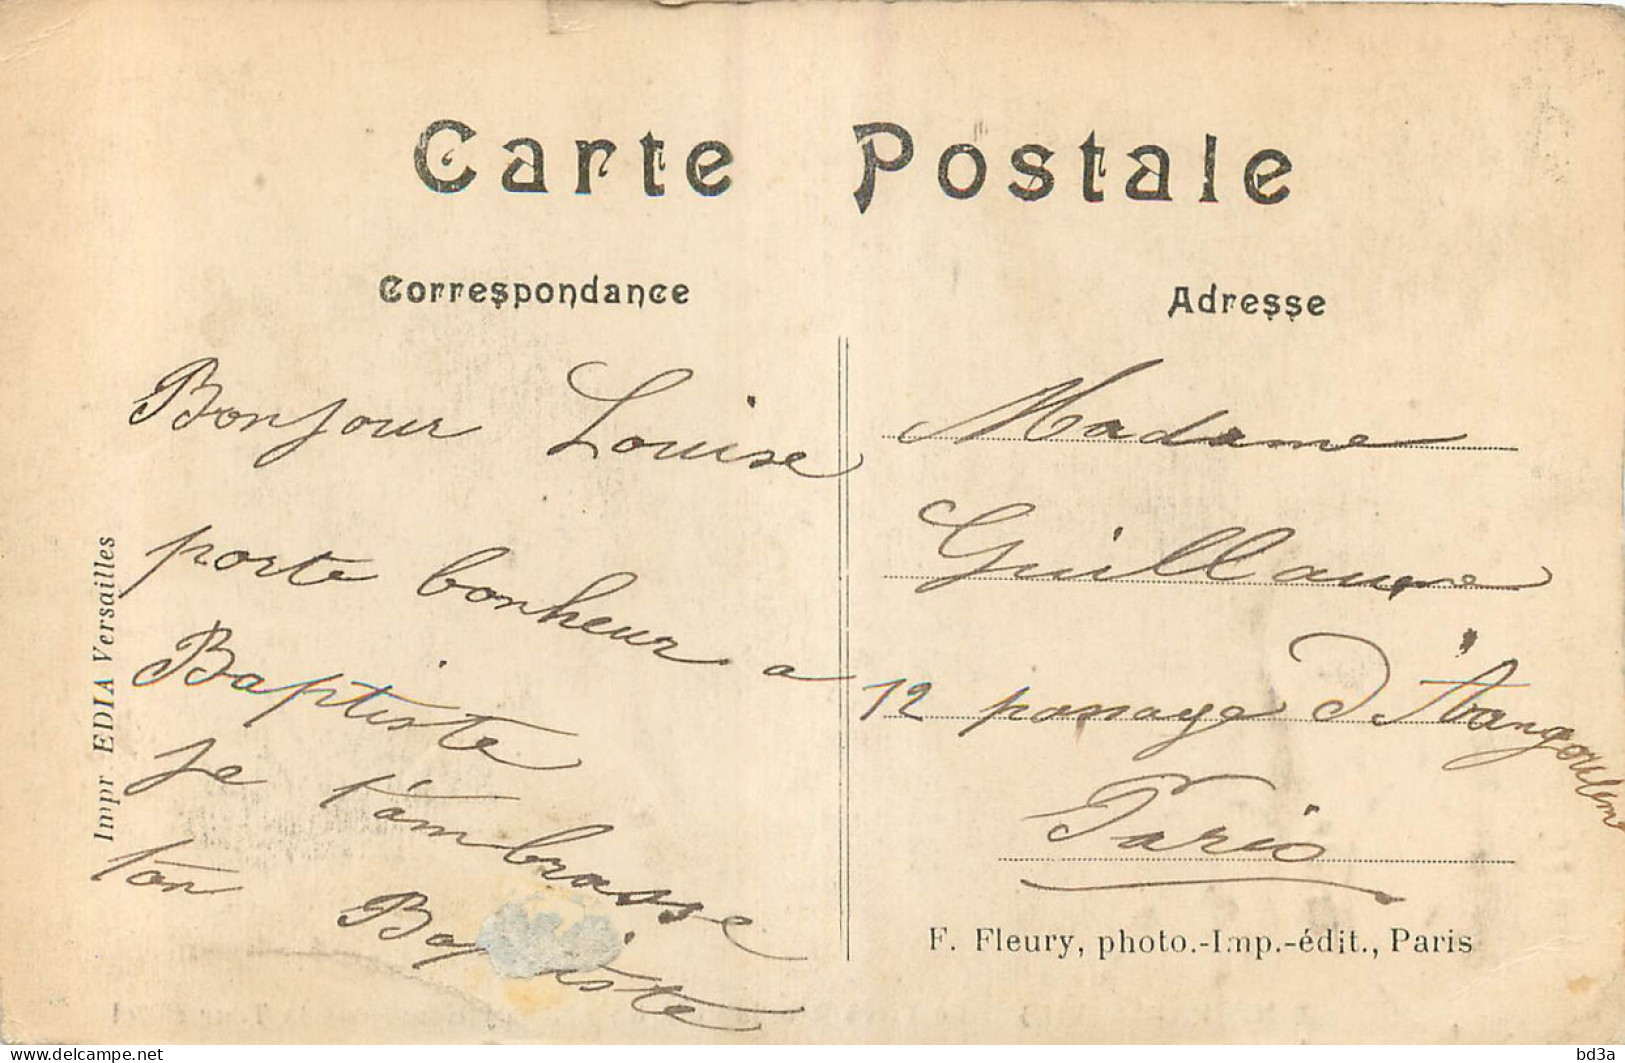 Carte Postale
Correspondance
Adresse
Bonjour Louise
porte bonheur a
Baptiste
je t'ambrasse
ton Baptiste
Madame
Guillaume
12 passage d'Aangoulem
Paris
F. Fleury, photo.-Imp.-édit., Paris
Impr EDIA Versailles
delcampe.net
bd3a